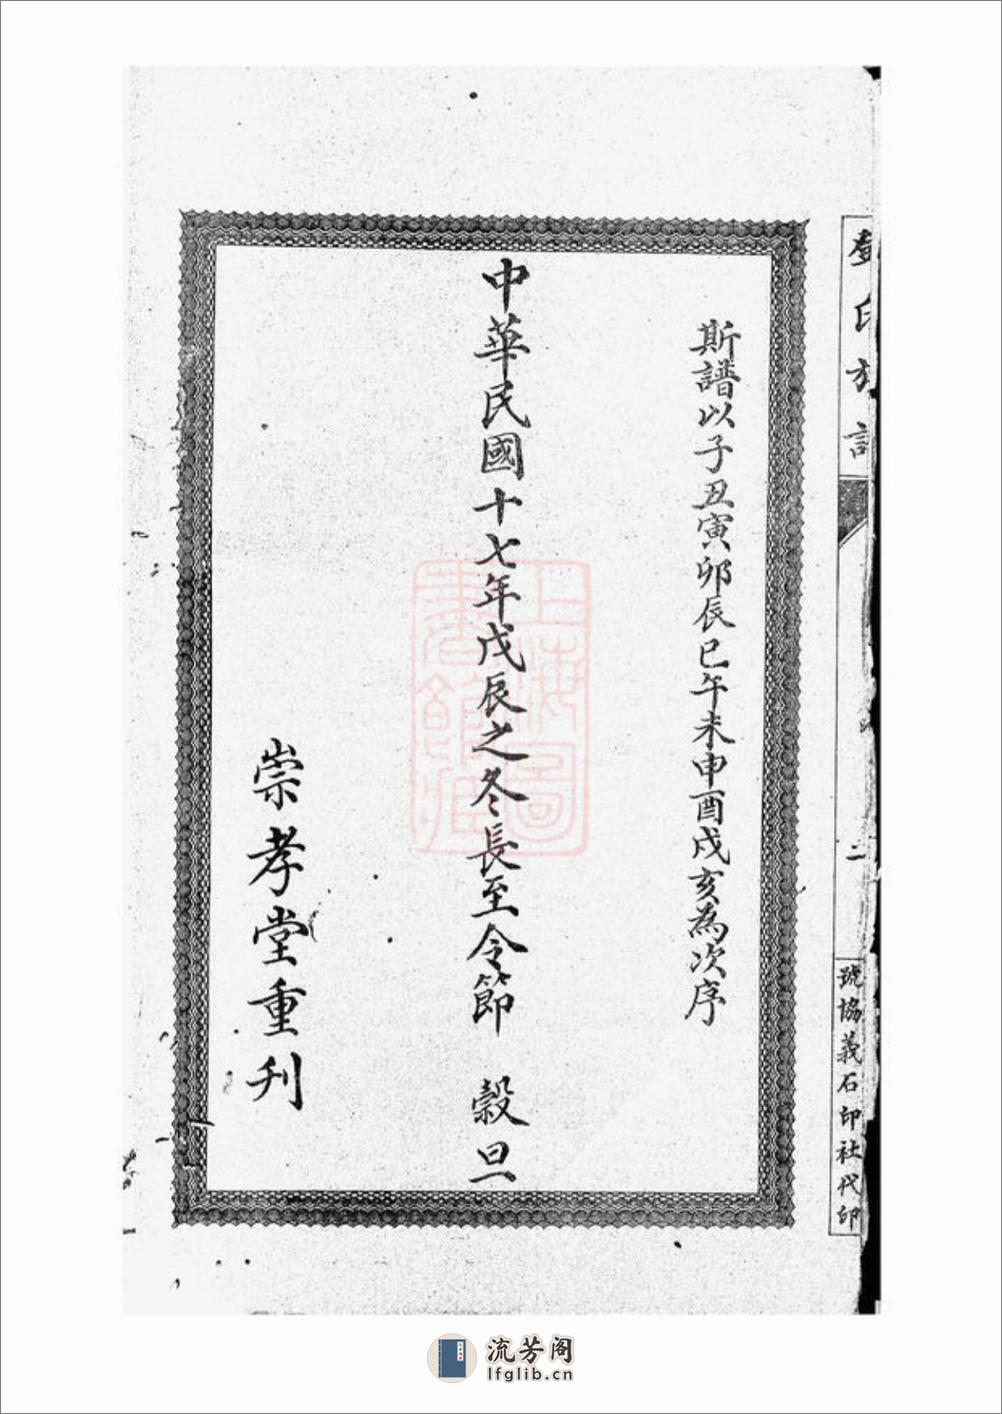 斯譜以子丑寅卯辰巳午未申酉戌亥為次序
中華民國十七年戊辰之冬長至令節　穀旦
崇孝堂重刋
氏族譜
二
號協義石印社代印
上海圖書館藏
流芳阁
lfglib.cn